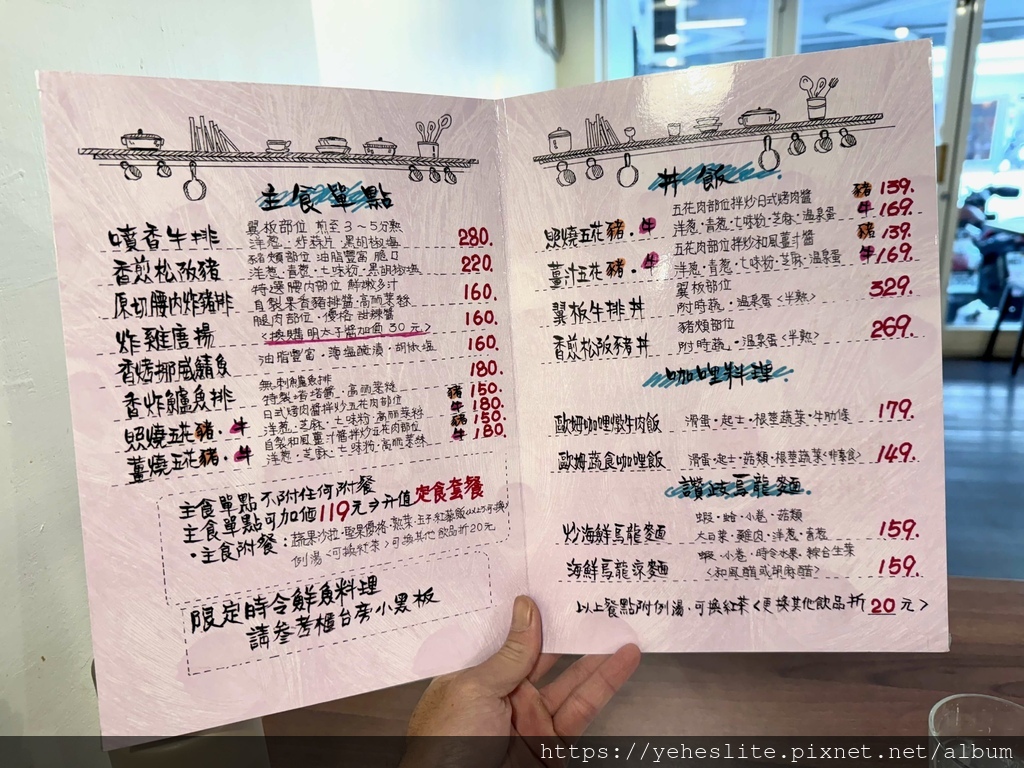 主食單點
噴香牛排 翼板部位 煎至3~5分熟 280.
洋蔥·炸蒜片·黑胡椒鹽
香煎松阪豬 豬頰部位 油脂豐富 脆口 220.
洋蔥·青蔥·七味粉·黑胡椒鹽
厚切腰內炸豬排 特選腰內部位 鮮嫩多汁 160.
自製果香豬排醬·高麗菜絲
炸雞唐揚 腿肉部位·優格 甜辣醬 160.
<換購明太子醬加價30元>
香烤挪威鯖魚 油脂豐富·薄鹽醃漬·胡椒鹽 160.
香炸鱸魚排 無刺鱸魚排 180.
特製塔塔醬·高麗菜絲
照燒五花豬·牛 日式烤肉醬拌炒五花部位 豬 150.
洋蔥·芝麻·七味粉·高麗菜絲 牛 180.
薑燒五花豬·牛 自製和風薑汁醬拌炒五花部位 豬 150.
洋蔥·芝麻·七味粉·高麗菜絲 牛 180.
主食單點不附任何附餐
主食單點可加価119元→升值定食套餐
·主食附餐·蔬果沙拉·堅果優格·熱菜·五子紅藜飯
例湯<可換紅茶>可換其他飲品折20元
限定時令鮮魚料理
請參考櫃台旁小黑板
丼飯
照燒五花豬·牛 五花肉部位拌炒日式烤肉醬 豬 139.
洋蔥·青蔥·七味粉·芝麻·溫泉蛋 牛 169.
薑汁五花豬·牛 五花肉部位拌炒和風薑汁醬 豬 139.
洋蔥·青蔥·七味粉·芝麻·溫泉蛋 牛 169.
翼板牛排丼 翼板部位 329.
附時蔬·溫泉蛋<半熟>
香煎松阪豬丼 豬頰部位 269.
附時蔬·溫泉蛋<半熟>
咖哩料理
歐姆咖哩燉牛肉飯 滑蛋·起士·根莖蔬菜·牛肋條 179.
歐姆蔬食咖哩飯 滑蛋·起士·菇類·根莖蔬菜<非素食> 149.
讚歧烏龍麵
炒海鮮烏龍麵 蝦·蛤·小卷·菇類 159.
大白菜·雞肉·洋蔥·青蔥
海鮮烏龍涼麵 蝦·小卷·時令水果·綜合生菜 159.
<和風醋或胡麻醬>
以上餐點附例湯·可換紅茶<更換其他飲品折20元>
https://yeheslite.pixnet.net/album